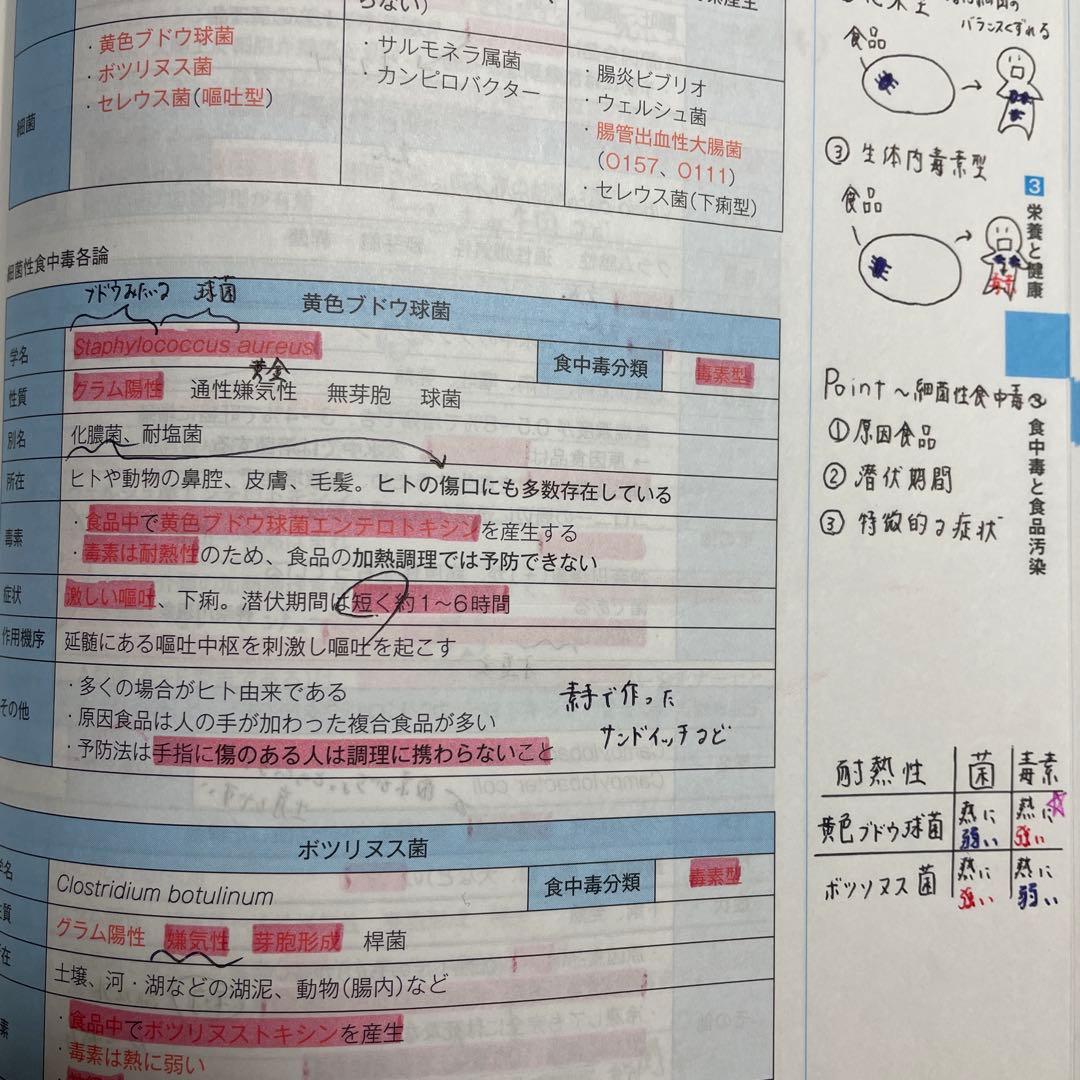 らない）
細菌
・黄色ブドウ球菌
・ボツリヌス菌
・セレウス菌（嘔吐型）
・サルモネラ属菌
・カンピロバクター
・腸炎ビブリオ
・ウェルシュ菌
・腸管出血性大腸菌
（O157、O111）
・セレウス菌（下痢型）
細菌性食中毒各論
ブドウみたいな 球菌
黄色ブドウ球菌
学名
Staphylococcus aureus
食中毒分類
毒素型
黄金
性質
グラム陽性 通性嫌気性 無芽胞 球菌
別名
化膿菌、耐塩菌
所在
ヒトや動物の鼻腔、皮膚、毛髪。ヒトの傷口にも多数存在している
毒素
・食品中で黄色ブドウ球菌エンテロトキシンを産生する
・毒素は耐熱性のため、食品の加熱調理では予防できない
症状
激しい嘔吐、下痢。潜伏期間は短く約1〜6時間
作用機序
延髄にある嘔吐中枢を刺激し嘔吐を起こす
その他
・多くの場合がヒト由来である
・原因食品は人の手が加わった複合食品が多い
・予防法は手指に傷のある人は調理に携わらないこと
素手で作った
サンドイッチなど
ボツリヌス菌
学名
Clostridium botulinum
食中毒分類
毒素型
性質
グラム陽性 嫌気性 芽胞形成 桿菌
所在
土壌、河・湖などの湖泥、動物（腸内）など
素
・食品中でボツリヌストキシンを産生
・毒素は熱に弱い
バランスくずれる
食品
③ 生体内毒素型
食品
毒
3 栄養と健康
食中毒と食品汚染
Point 〜細菌性食中毒〜
① 原因食品
② 潜伏期間
③ 特徴的な症状
耐熱性 菌 毒素
黄色ブドウ球菌 熱に弱い 熱に強い
ボツリヌス菌 熱に強い 熱に弱い